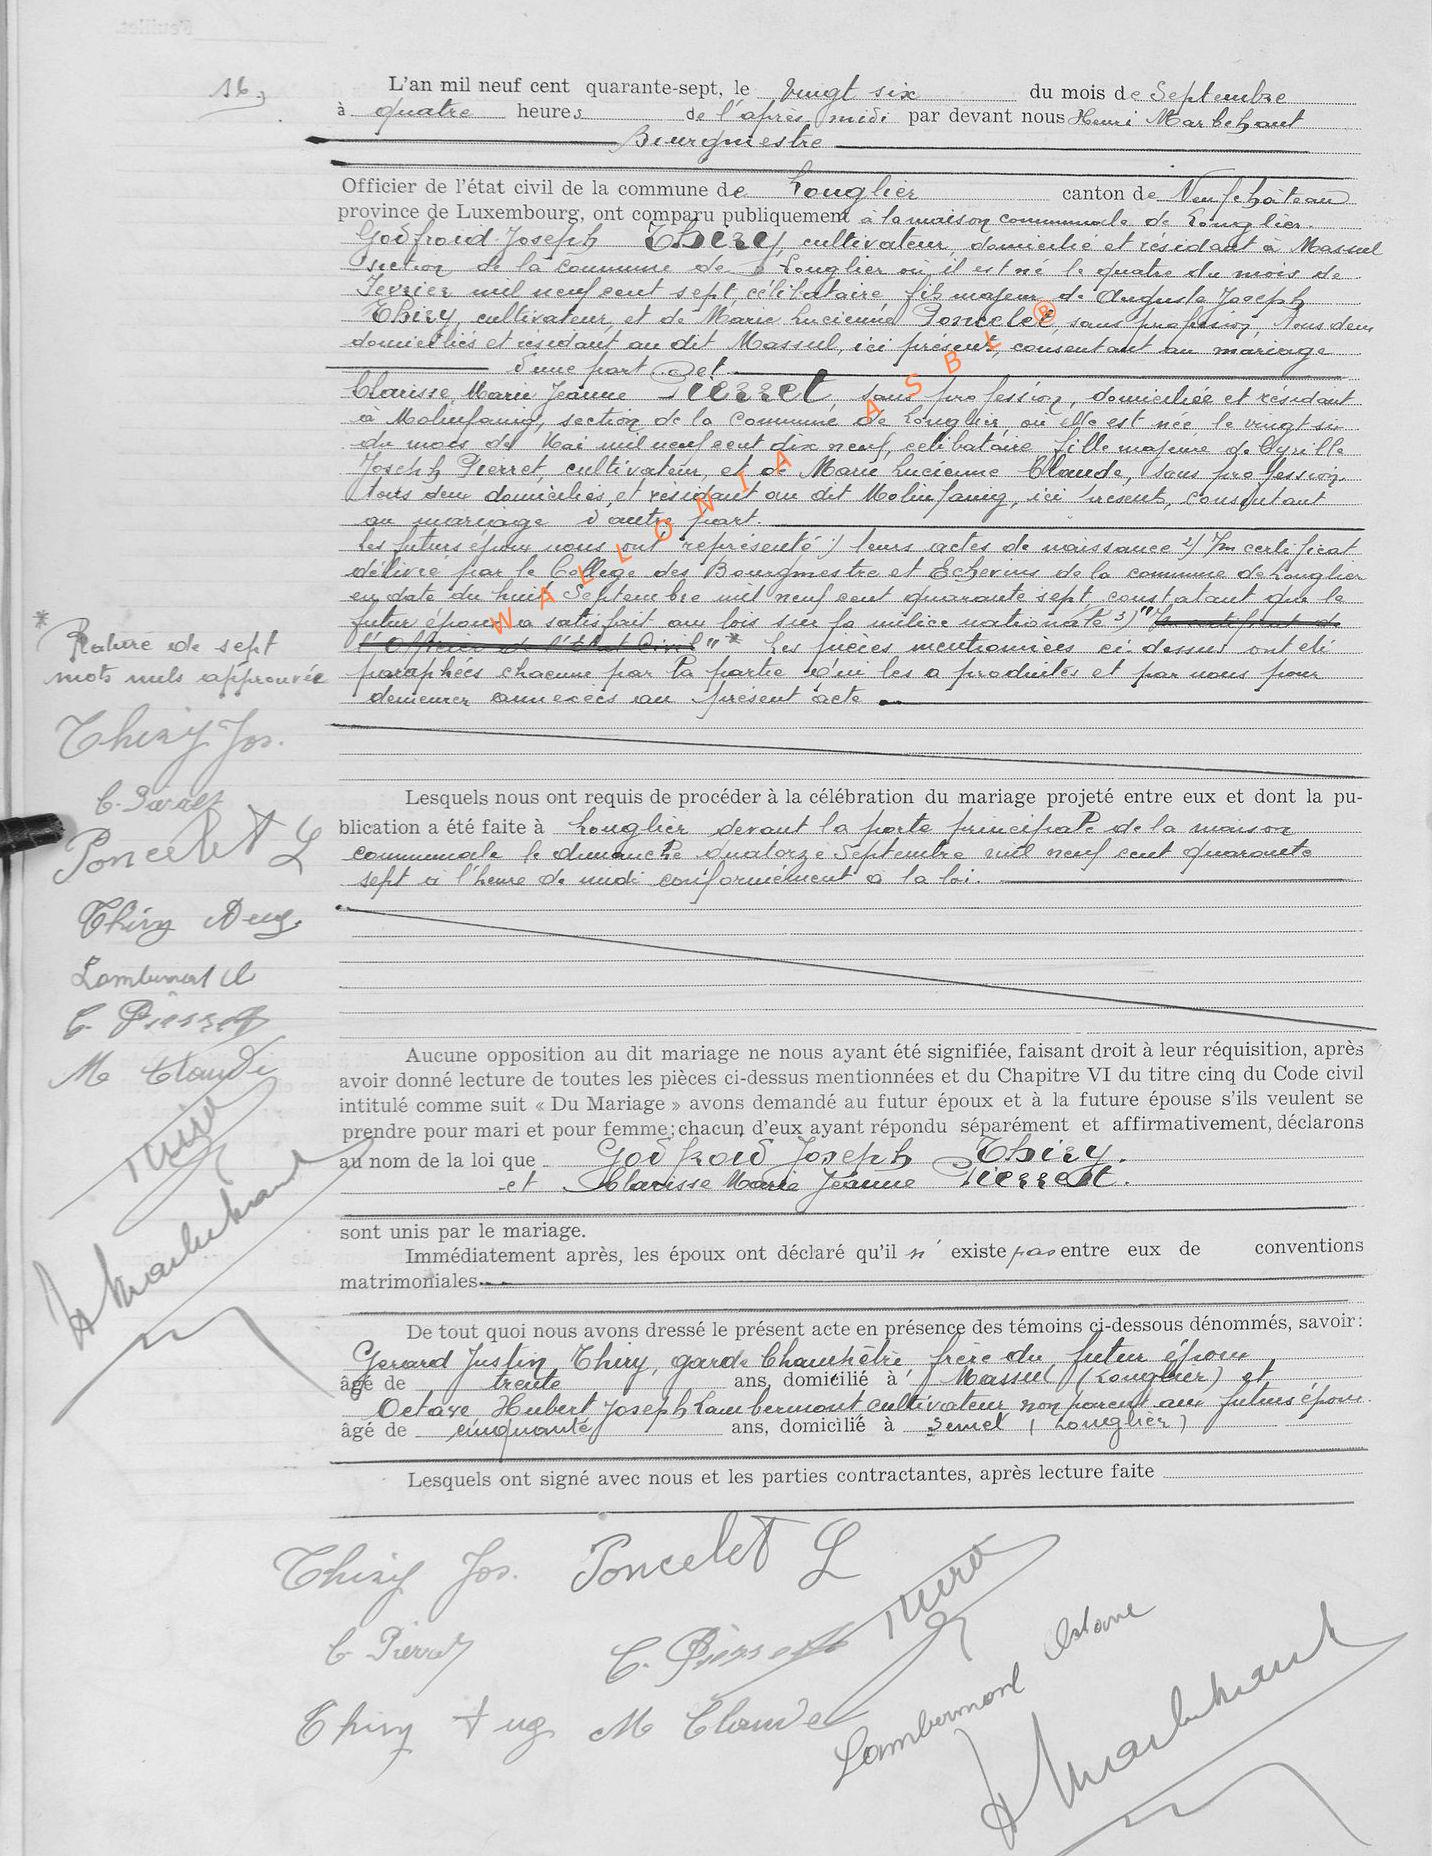 16,
L'an mil neuf cent quarante-sept, le vingt six du mois de Septembre
à quatre heures de l'après midi par devant nous Henri Marbehant
Bourgmestre
Officier de l'état civil de la commune de Longlier canton de Neufchâteau
province de Luxembourg, ont comparu publiquement à la maison communale de Longlier.
Godfroid Joseph Thiry, cultivateur, domicilié et résidant à Massul
section de la commune de Longlier où il est né le quatre du mois de
Février mil neuf cent sept, célibataire fils majeur de Auguste Joseph
Thiry, cultivateur, et de Marie Lucienne Poncelet, sans profession, tous deux
domiciliés et résidant au dit Massul, ici présents, consentant au mariage
d'une part et
Clarisse, Marie Jeanne Pierret, sans profession, domiciliée et résidant
à Molinfaing, section de la commune de Longlier, où elle est née le vingt six
du mois de Mai mil neuf cent dix neuf, célibataire fille majeure de Cyrille
Joseph Pierret, cultivateur, et de Marie Lucienne Claude, sans profession
tous deux domiciliés, et résidant au dit Molinfaing, ici présents, consentant
au mariage d'autre part.
Les futurs époux nous ont représenté 1) leurs actes de naissance 2) Un certificat
délivré par le Collège des Bourgmestre et Echevins de la commune de Longlier
en date du huit Septembre mil neuf cent quarante sept, constatant que le
futur époux a satisfait aux lois sur la milice nationale 3) "Un certificat de
l'Officier de l'Etat Civil" * Les pièces mentionnées ci-dessus ont été
paraphées chacune par la partie qui les a produites et par nous pour
demeurer annexées au présent acte
WALLONIA ASBL ®
* Rature de sept
mots nuls approuvée
Thiry Jos.
C. Pierret
Poncelet L
Thiry Aug.
Lambermont O
C. Pierret
M Claude
Thiry
H Marbehant
Lesquels nous ont requis de procéder à la célébration du mariage projeté entre eux et dont la pu-
blication a été faite à Longlier devant la porte principale de la maison
communale le dimanche quatorze Septembre mil neuf cent quarante
sept à l'heure de midi conformément à la loi.
Aucune opposition au dit mariage ne nous ayant été signifiée, faisant droit à leur réquisition, après
avoir donné lecture de toutes les pièces ci-dessus mentionnées et du Chapitre VI du titre cinq du Code civil
intitulé comme suit « Du Mariage » avons demandé au futur époux et à la future épouse s'ils veulent se
prendre pour mari et pour femme; chacun d'eux ayant répondu séparément et affirmativement, déclarons
au nom de la loi que Godfroid Joseph Thiry.
et Clarisse Marie Jeanne Pierret.
sont unis par le mariage.
Immédiatement après, les époux ont déclaré qu'il n' existe pas entre eux de conventions
matrimoniales
De tout quoi nous avons dressé le présent acte en présence des témoins ci-dessous dénommés, savoir:
Gerard Justin Thiry, garde Champêtre frère du futur époux
âgé de trente ans, domicilié à Massul (Longlier) et
Octave Hubert Joseph Lambermont cultivateur non parent aux futurs époux.
âgé de cinquante ans, domicilié à Semel (Longlier)
Lesquels ont signé avec nous et les parties contractantes, après lecture faite
Thiry Jos. Poncelet L
C. Pierret C. Pierret Thiry
Thiry Aug M Claude Lambermont Octave
H Marbehant